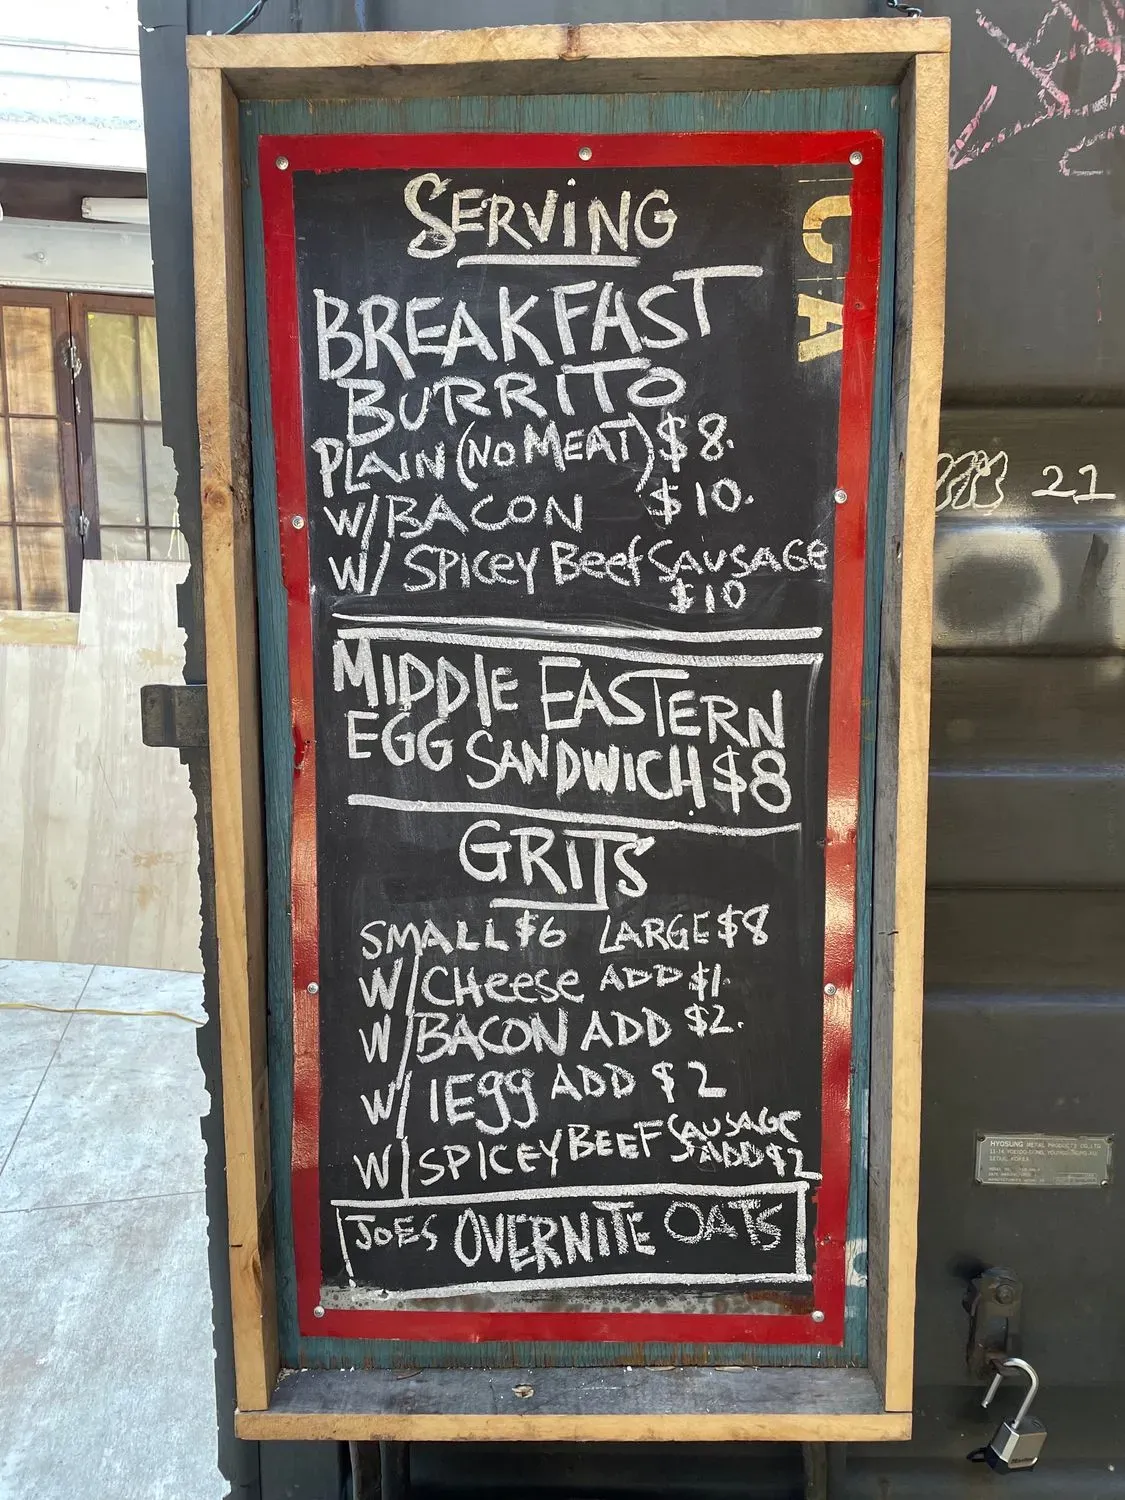 SERViNG
BREAKFAST
BURRITO
PLAIN (NO MEAT) $8.
W/BACON $10.
W/ SPICEY Beef SAUSAGE
$10
MIDDLE EASTERN
EGG SANDWICH $8
GRITS
SMALL $6 LARGE $8
W/CHeese ADD $1.
W/BACON ADD $2.
W/ 1Egg ADD $2
W/SPICEY BEEF SAUSAGE
ADD $2
JoES OVERNITE OATS
CA
21
HYOSUNG METAL PRODUCTS CO.,LTD.